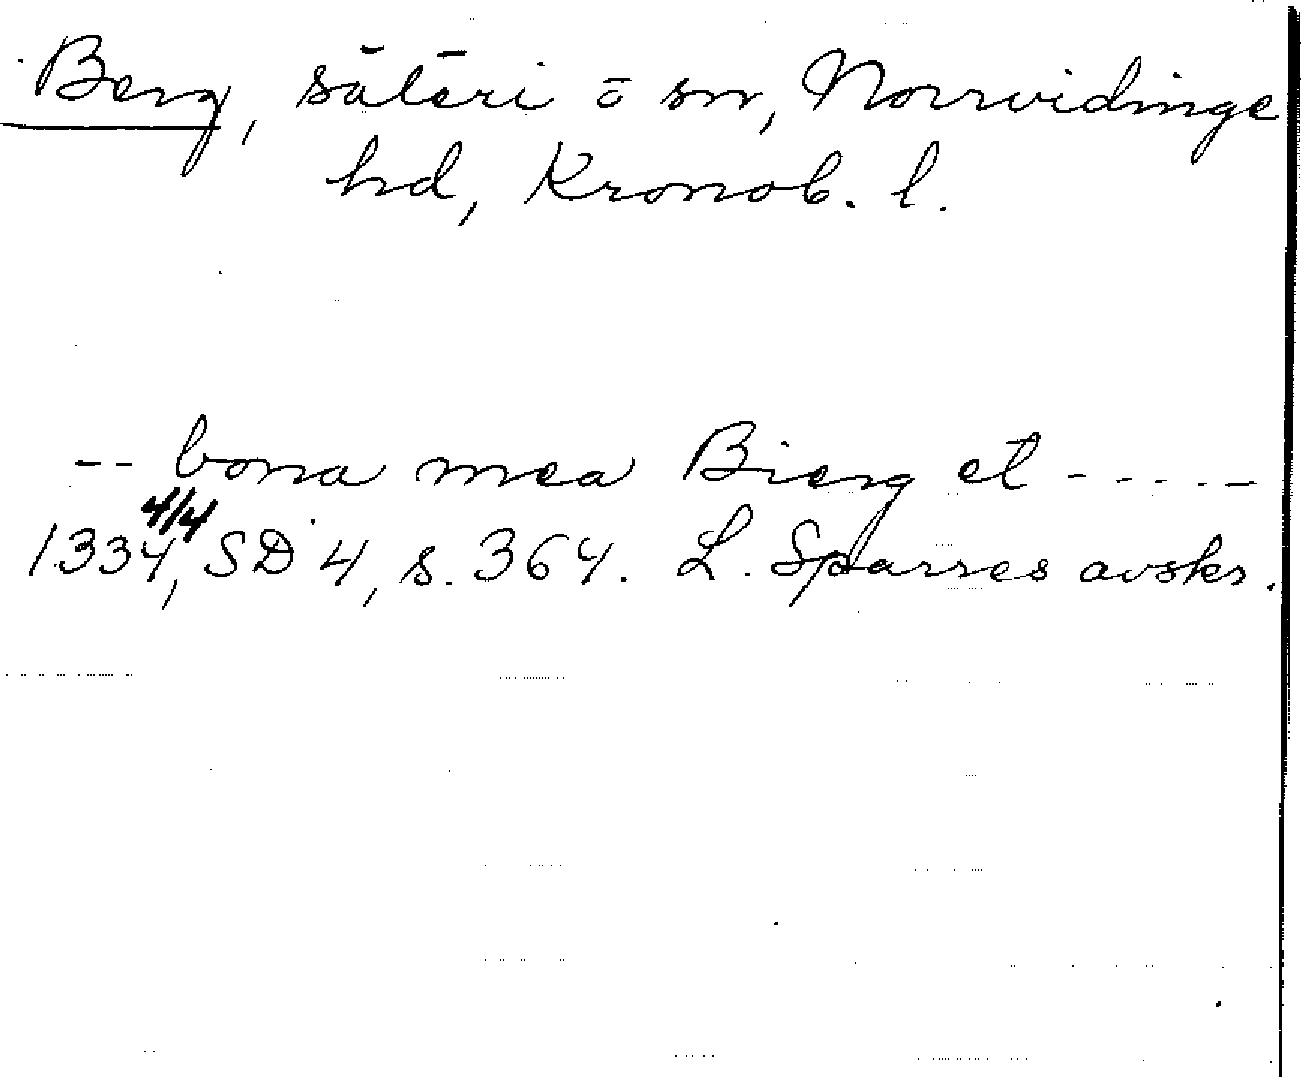 Berg, säteri o sn, Norrvidinge
hd, Kronob. l.
-- bona mea Bierg et -----
4/4
1334, SD 4, s. 364. L. Sparres avskr.